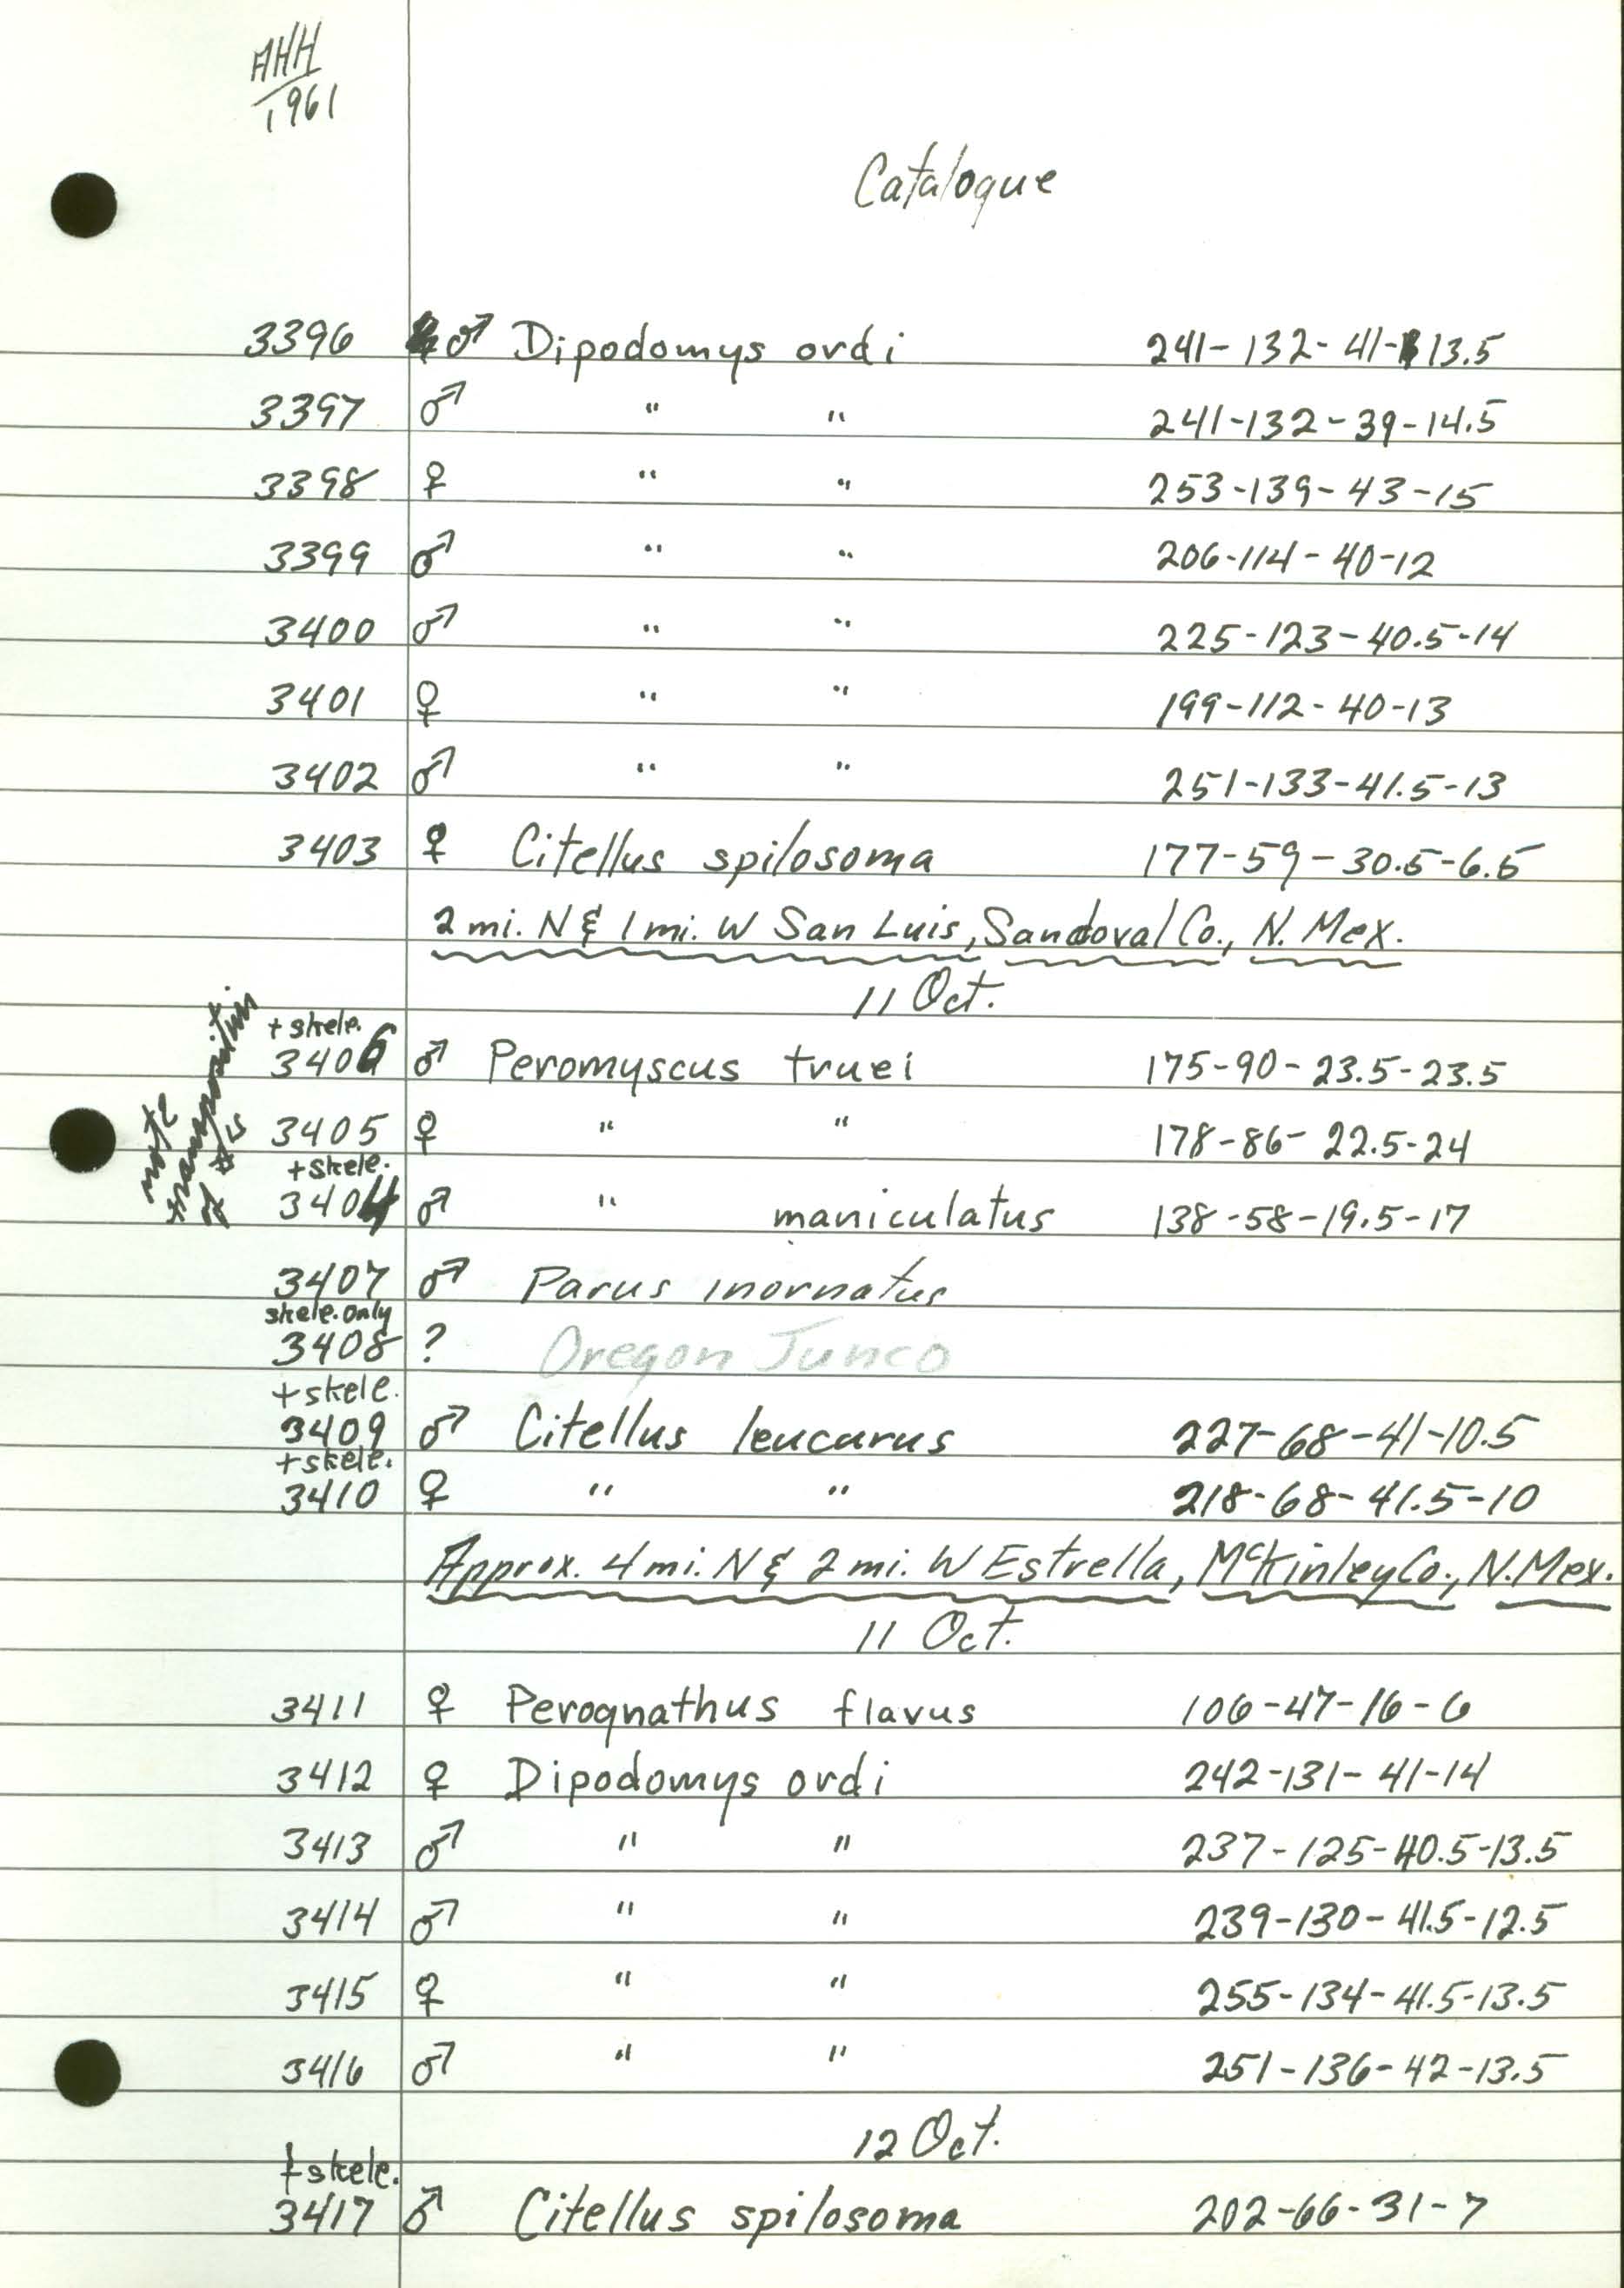 AHH
1961
Catalogue
3396 ♂ Dipodomys ordi 241-132-41-13.5
3397 ♂ " " 241-132-39-14.5
3398 ♀ " " 253-139-43-15
3399 ♂ " " 206-114-40-12
3400 ♂ " " 225-123-40.5-14
3401 ♀ " " 199-112-40-13
3402 ♂ " " 251-133-41.5-13
3403 ♀ Citellus spilosoma 177-59-30.5-6.5
2 mi. N & 1 mi. W San Luis, Sandoval Co., N. Mex.
11 Oct.
+ skele.
3406 ♂ Peromyscus truei 175-90-23.5-23.5
3405 ♀ " " 178-86-22.5-24
+ skele.
3404 ♂ " maniculatus 138-58-19.5-17
note
transposition
of #'s
3407 ♂ Parus inornatus
skele. only
3408 ? Oregon Junco
+ skele.
3409 ♂ Citellus leucurus 227-68-41-10.5
+ skele.
3410 ♀ " " 218-68-41.5-10
Approx. 4 mi. N & 2 mi. W Estrella, McKinley Co., N. Mex.
11 Oct.
3411 ♀ Perognathus flavus 106-47-16-6
3412 ♀ Dipodomys ordi 242-131-41-14
3413 ♂ " " 237-125-40.5-13.5
3414 ♂ " " 239-130-41.5-12.5
3415 ♀ " " 255-134-41.5-13.5
3416 ♂ " " 251-136-42-13.5
12 Oct.
+ skele.
3417 ♂ Citellus spilosoma 202-66-31-7